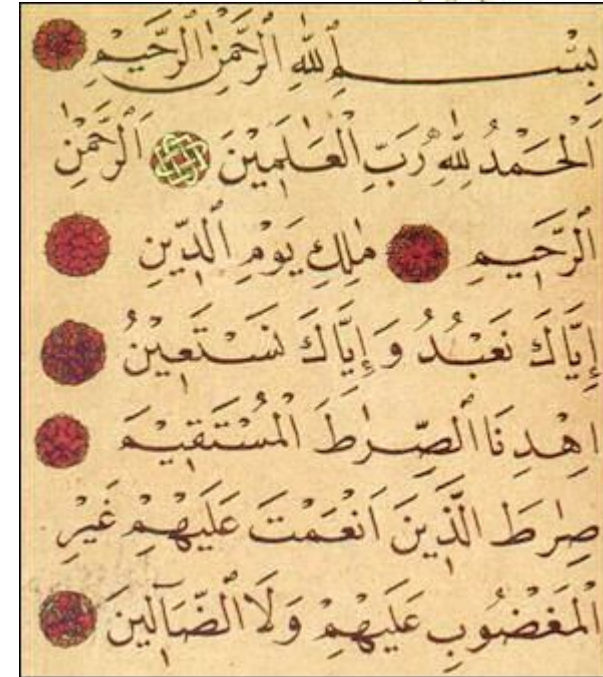 بِسْمِ اللّٰهِ الرَّحْمٰنِ الرَّحِيْمِ
اَلْحَمْدُ لِلّٰهِ رَبِّ الْعَالَمِيْنَ اَلرَّحْمٰنِ
الرَّحِيْمِ مٰلِكِ يَوْمِ الدِّيْنِ
إِيَّاكَ نَعْبُدُ وَإِيَّاكَ نَسْتَعِيْنُ
اِهْدِنَا الصِّرٰطَ الْمُسْتَقِيْمَ
صِرٰطَ الَّذِيْنَ اَنْعَمْتَ عَلَيْهِمْ غَيْرِ
الْمَغْضُوْبِ عَلَيْهِمْ وَلَا الضَّآلِّيْنَ